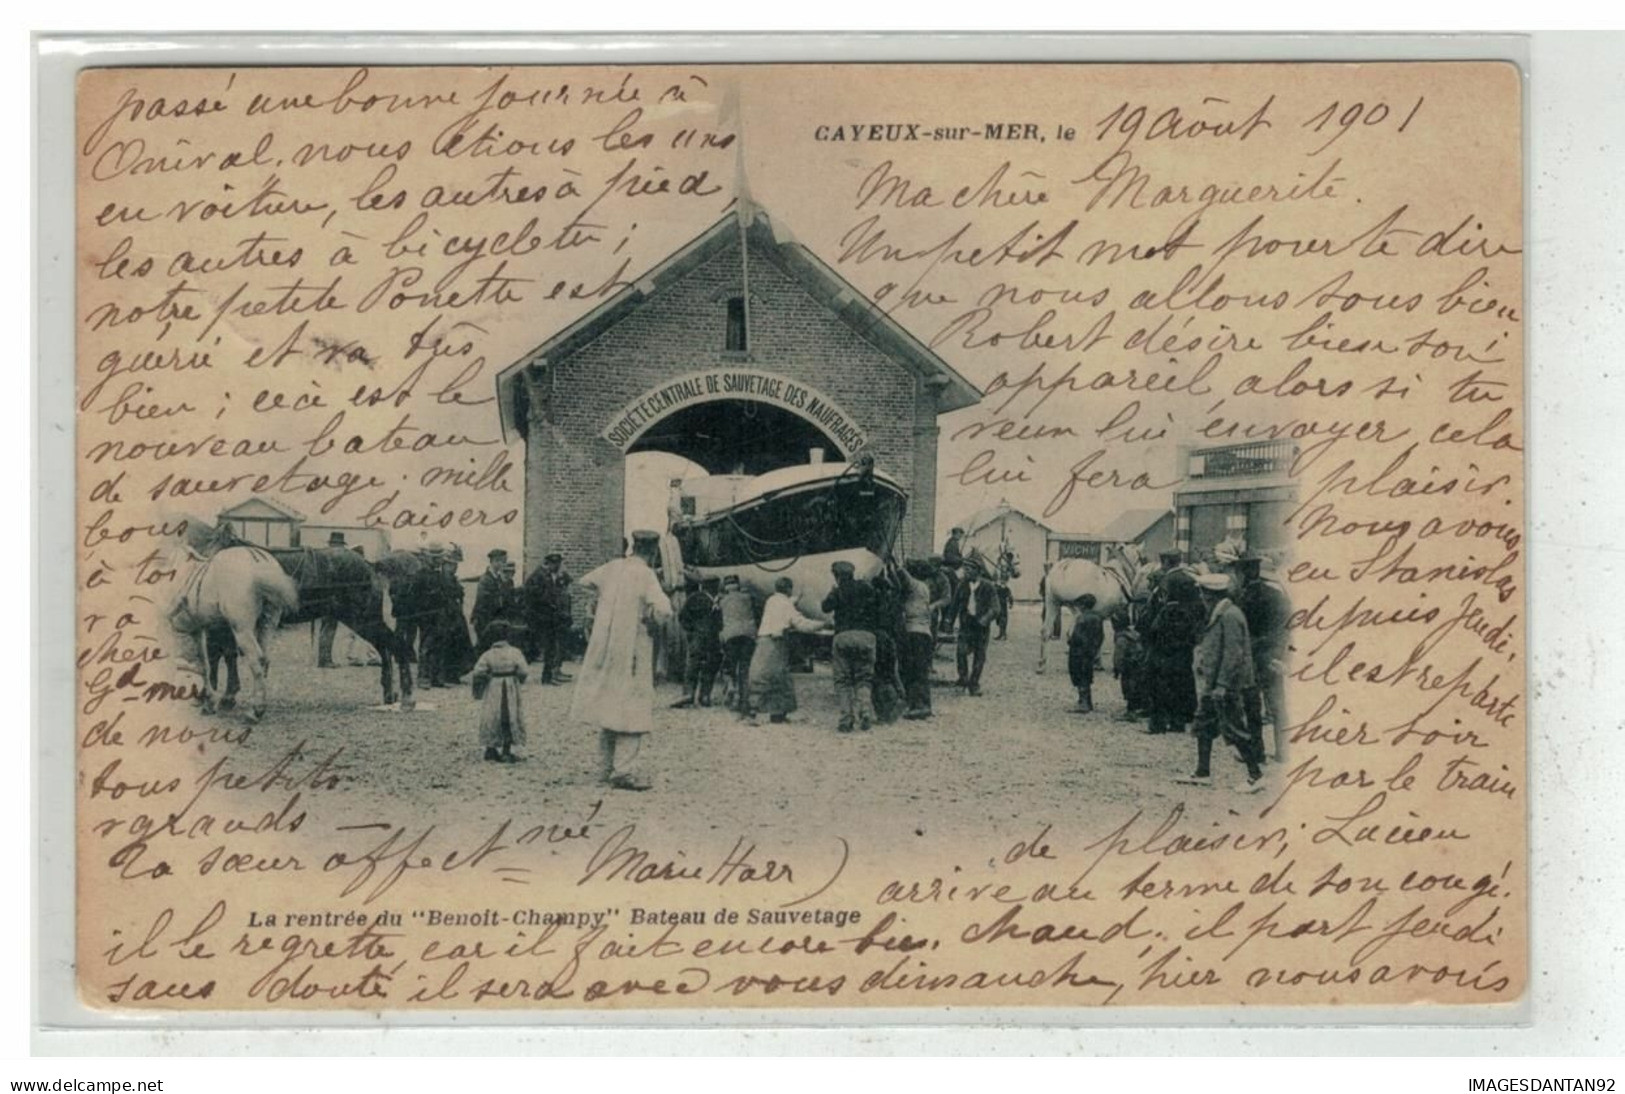 CAYEUX-sur-MER, le 19 Août 1901
Ma chère Marguerite.
Un petit mot pour te dire
que nous allons tous bien
Robert désire bien son
appareil, alors si tu
veux lui envoyer cela
lui fera plaisir.
Nous avons
eu Stanislas
depuis Jeudi,
il est reparti
hier soir
par le train
de plaisir; Lucien
arrive au terme de son congé.
il le regrette, car il fait encore bien chaud; il part Jeudi
sans doute il sera avec vous dimanche, hier nous avons
passé une bonne journée à
Onival. nous étions les uns
en voiture, les autres à pied
les autres à bicyclette;
notre petite Ponette est
guérie et va très
bien; ceci est le
nouveau bateau
de sauvetage. mille
bons baisers
à toi
à
chère
Gd-mère
de nous
tous petits
grands —
Ta sœur affectnée
Marie Harr
SOCIÉTÉ CENTRALE DE SAUVETAGE DES NAUFRAGÉS
VICHY
La rentrée du "Benoit-Champy" Bateau de Sauvetage
www.delcampe.net
IMAGESDANTAN92